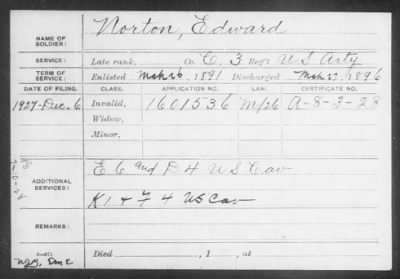 NAME OF SOLDIER: Norton, Edward
SERVICE: Late rank, Co. C, 3 Reg't US Arty
TERM OF SERVICE: Enlisted Mch 26, 1891 Discharged Mch 27, 1896
DATE OF FILING. CLASS. APPLICATION NO. LAW. CERTIFICATE NO.
1927-Dec. 6 Invalid, 1601536 M/26 A-8-3-28
Widow,
Minor,
ADDITIONAL SERVICES: E 6 and D 4 U S Cav
K1 & F 4 US Cav
REMARKS:
Died , 1 , at